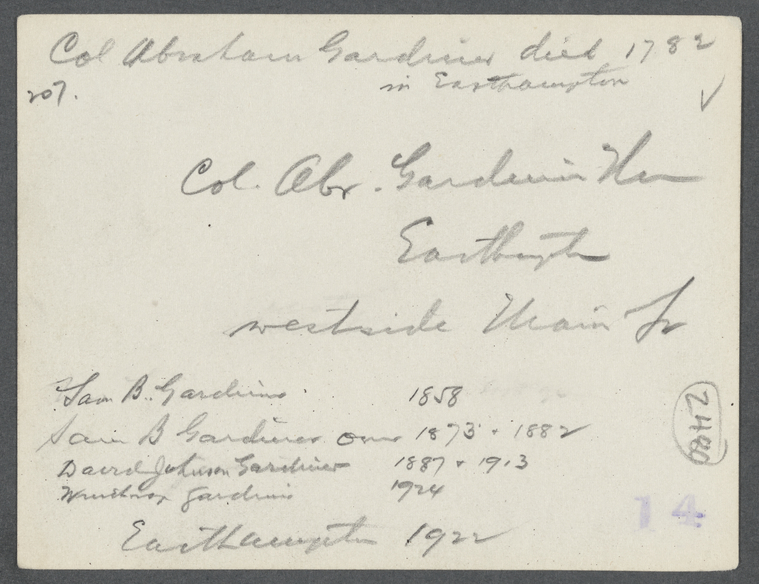 Col Abraham Gardiner died 1782
207.
in Easthampton
Col. Abr. Gardiner Hse
Easthampton
westside Main St
Sam B. Gardiner 1858
Sam B Gardiner own 1873 + 1882
David Johnson Gardiner 1887 + 1913
Winthrop Gardiner 1924
Easthampton 1922
2480
14